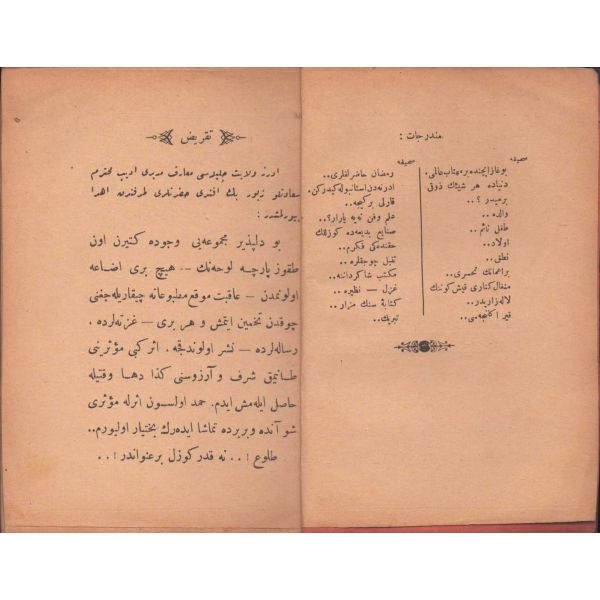 مندرجات :
صحیفه
بوغاز ایچنده بر مهتاب عالمی.
دنیاده هر شیئك ذوقی
برمیدر؟..
والده..
طفل نائم..
اولاد..
نطق..
براعمانك تحسری..
منغال کناری قیش کوننك
لاله زاریدر..
قیر اکلنجه سی..
صحیفه
رمضان حاضرلقلری..
ادرنه دن استانبوله کیدرکن.
قارلی برکیجه..
علم وفن نه یه یارار؟..
صنایع بدیعه ده کوزللك
حقنده کی فکرم..
تنبل چوجقلره..
مکتب شاکرداننه..
غزل — نظیره..
کتابهٔ سنك مزار..
تبریك..
تقریض
ادرنه ولایت جلیله سی معارف مدیری ادیب محترم
سعادتلو زیور بك افندی حضرتلری طرفندن اهدا
بیورلمشدر :
بو دلپذیر مجموعه یی وجوده کتیرن اون
طقوز پارچه لوحه نك — هیچ بری اضاعه
اولونمدن — عاقبت موقع مطبوعاته چیقاریله جغنی
چوقدن تخمین ایتمش و هر بری — غزته لرده،
رساله لرده — نشر اولوندقجه. اثر کبی مؤثرینی
طانیمق شرف و آرزوسنی کذا دها وقتیله
حاصل ایله مش ایدم. حمد اولسون اثرله مؤثری
شو آنده وبریرده تماشا ایده رك بختیار اولیورم..
طلوع !.. نه قدر کوزل برعنواندر !..